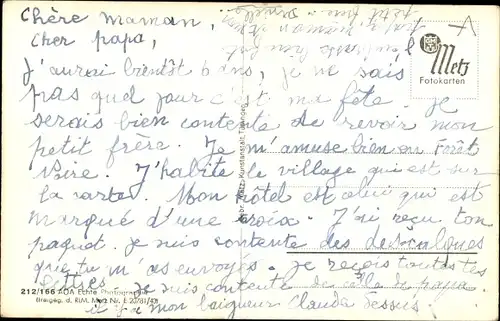 Chère maman,
cher papa,
J'aurai bientôt 6 ans, je ne sais
pas quel jour c'est ma fête. je
serais bien contente de revoir mon
petit frère. Je m'amuse bien en forêt
noire. J'habite le village qui est sur
la carte. Mon hôtel est celui qui est
marqué d'une croix. J'ai reçu ton
paquet. je suis contente des descalques
que tu m'as envoyés. je reçois toutes tes
lettres. je suis contente de
il y a mon baigneur Claude dessus.
Metz
Fotokarten
212/166 ADA Echte Photographie
(freigeg. d. RIM. Metz Nr.
Metz, Kunstanstalt, Tübingen